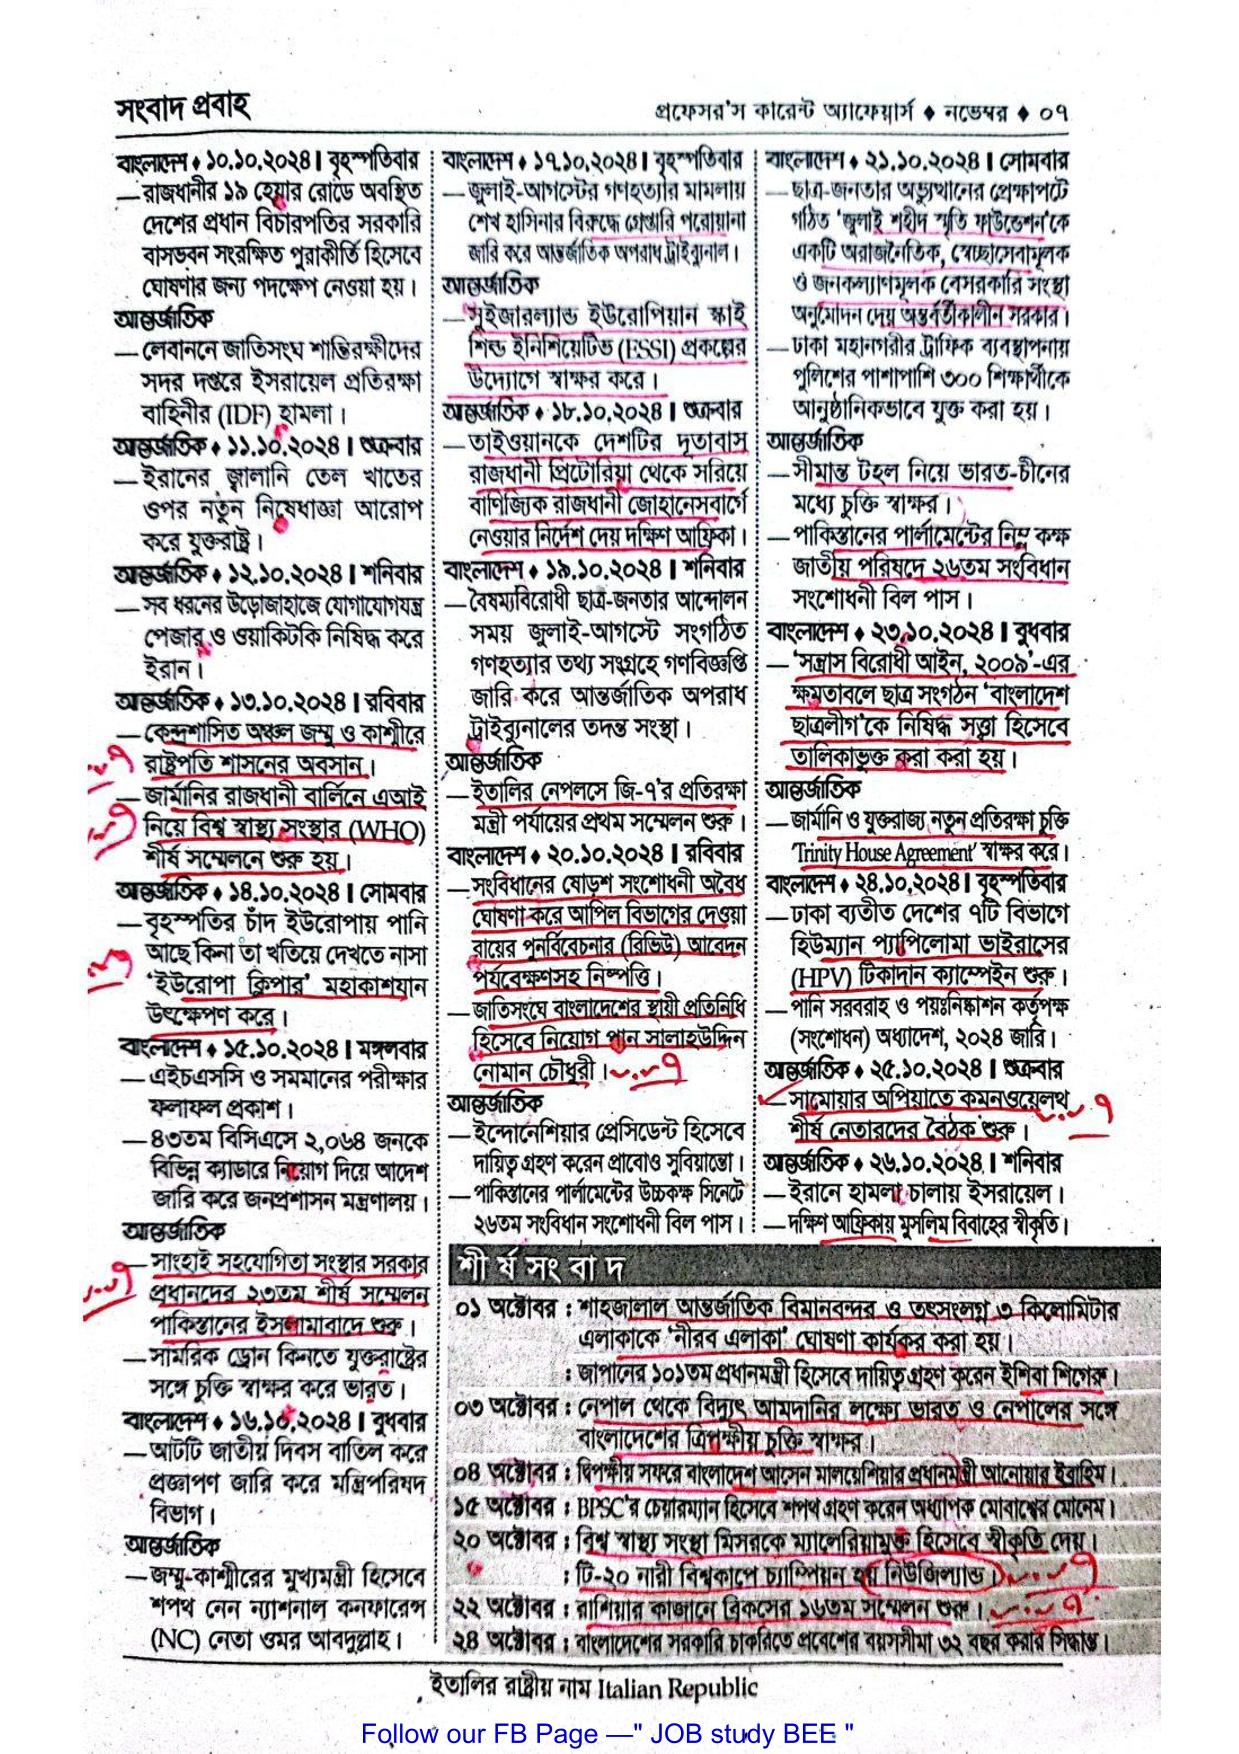 সংবাদ প্রবাহ
প্রফেসর'স কারেন্ট অ্যাফেয়ার্স ♦ নভেম্বর ♦ ০৭
বাংলাদেশ ♦ ১০.১০.২০২৪ । বৃহস্পতিবার
— রাজধানীর ১৯ হেয়ার রোডে অবস্থিত
দেশের প্রধান বিচারপতির সরকারি
বাসভবন সংরক্ষিত পুরাকীর্তি হিসেবে
ঘোষণার জন্য পদক্ষেপ নেওয়া হয়।
আন্তর্জাতিক
— লেবাননে জাতিসংঘ শান্তিরক্ষীদের
সদর দপ্তরে ইসরায়েল প্রতিরক্ষা
বাহিনীর (IDF) হামলা।
আন্তর্জাতিক ♦ ১১.১০.২০২৪ । শুক্রবার
— ইরানের জ্বালানি তেল খাতের
ওপর নতুন নিষেধাজ্ঞা আরোপ
করে যুক্তরাষ্ট্র।
আন্তর্জাতিক ♦ ১২.১০.২০২৪ । শনিবার
— সব ধরনের উড়োজাহাজে যোগাযোগযন্ত্র
পেজার ও ওয়াকিটকি নিষিদ্ধ করে
ইরান।
আন্তর্জাতিক ♦ ১৩.১০.২০২৪ । রবিবার
— কেন্দ্রশাসিত অঞ্চল জম্মু ও কাশ্মীরে
রাষ্ট্রপতি শাসনের অবসান।
— জার্মানির রাজধানী বার্লিনে এআই
নিয়ে বিশ্ব স্বাস্থ্য সংস্থার (WHO)
শীর্ষ সম্মেলনে শুরু হয়।
আন্তর্জাতিক ♦ ১৪.১০.২০২৪ । সোমবার
— বৃহস্পতির চাঁদ ইউরোপায় পানি
আছে কিনা তা খতিয়ে দেখতে নাসা
‘ইউরোপা ক্লিপার’ মহাকাশযান
উৎক্ষেপণ করে।
বাংলাদেশ ♦ ১৫.১০.২০২৪ । মঙ্গলবার
— এইচএসসি ও সমমানের পরীক্ষার
ফলাফল প্রকাশ।
— ৪৩তম বিসিএসে ২,০৬৪ জনকে
বিভিন্ন ক্যাডারে নিয়োগ দিয়ে আদেশ
জারি করে জনপ্রশাসন মন্ত্রণালয়।
আন্তর্জাতিক
— সাংহাই সহযোগিতা সংস্থার সরকার
প্রধানদের ২৩তম শীর্ষ সম্মেলন
পাকিস্তানের ইসলামাবাদে শুরু।
— সামরিক ড্রোন কিনতে যুক্তরাষ্ট্রের
সঙ্গে চুক্তি স্বাক্ষর করে ভারত।
বাংলাদেশ ♦ ১৬.১০.২০২৪ । বুধবার
— আটটি জাতীয় দিবস বাতিল করে
প্রজ্ঞাপণ জারি করে মন্ত্রিপরিষদ
বিভাগ।
আন্তর্জাতিক
— জম্মু-কাশ্মীরের মুখ্যমন্ত্রী হিসেবে
শপথ নেন ন্যাশনাল কনফারেন্স
(NC) নেতা ওমর আবদুল্লাহ।
বাংলাদেশ ♦ ১৭.১০.২০২৪ । বৃহস্পতিবার
— জুলাই-আগস্টের গণহত্যার মামলায়
শেখ হাসিনার বিরুদ্ধে গ্রেপ্তারি পরোয়ানা
জারি করে আন্তর্জাতিক অপরাধ ট্রাইব্যুনাল।
আন্তর্জাতিক
— সুইজারল্যান্ড ইউরোপিয়ান স্কাই
শিল্ড ইনিশিয়েটিভ (ESSI) প্রকল্পের
উদ্যোগে স্বাক্ষর করে।
আন্তর্জাতিক ♦ ১৮.১০.২০২৪ । শুক্রবার
— তাইওয়ানকে দেশটির দূতাবাস
রাজধানী প্রিটোরিয়া থেকে সরিয়ে
বাণিজ্যিক রাজধানী জোহানেসবার্গে
নেওয়ার নির্দেশ দেয় দক্ষিণ আফ্রিকা।
বাংলাদেশ ♦ ১৯.১০.২০২৪ । শনিবার
— বৈষম্যবিরোধী ছাত্র-জনতার আন্দোলন
সময় জুলাই-আগস্টে সংগঠিত
গণহত্যার তথ্য সংগ্রহে গণবিজ্ঞপ্তি
জারি করে আন্তর্জাতিক অপরাধ
ট্রাইব্যুনালের তদন্ত সংস্থা।
আন্তর্জাতিক
— ইতালির নেপলসে জি-৭'র প্রতিরক্ষা
মন্ত্রী পর্যায়ের প্রথম সম্মেলন শুরু।
বাংলাদেশ ♦ ২০.১০.২০২৪ । রবিবার
— সংবিধানের ষোড়শ সংশোধনী অবৈধ
ঘোষণা করে আপিল বিভাগের দেওয়া
রায়ের পুনর্বিবেচনার (রিভিউ) আবেদন
পর্যবেক্ষণসহ নিষ্পত্তি।
— জাতিসংঘে বাংলাদেশের স্থায়ী প্রতিনিধি
হিসেবে নিয়োগ পান সালাহউদ্দিন
নোমান চৌধুরী।
আন্তর্জাতিক
— ইন্দোনেশিয়ার প্রেসিডেন্ট হিসেবে
দায়িত্ব গ্রহণ করেন প্রাবোও সুবিয়ান্তো।
— পাকিস্তানের পার্লামেন্টের উচ্চকক্ষ সিনেটে
২৬তম সংবিধান সংশোধনী বিল পাস।
বাংলাদেশ ♦ ২১.১০.২০২৪ । সোমবার
— ছাত্র-জনতার অভ্যুত্থানের প্রেক্ষাপটে
গঠিত ‘জুলাই শহীদ স্মৃতি ফাউন্ডেশন’কে
একটি অরাজনৈতিক, স্বেচ্ছাসেবামূলক
ও জনকল্যাণমূলক বেসরকারি সংস্থা
অনুমোদন দেয় অন্তর্বর্তীকালীন সরকার।
— ঢাকা মহানগরীর ট্রাফিক ব্যবস্থাপনায়
পুলিশের পাশাপাশি ৩০০ শিক্ষার্থীকে
আনুষ্ঠানিকভাবে যুক্ত করা হয়।
আন্তর্জাতিক
— সীমান্ত টহল নিয়ে ভারত-চীনের
মধ্যে চুক্তি স্বাক্ষর।
— পাকিস্তানের পার্লামেন্টের নিম্ন কক্ষ
জাতীয় পরিষদে ২৬তম সংবিধান
সংশোধনী বিল পাস।
বাংলাদেশ ♦ ২৩.১০.২০২৪ । বুধবার
— ‘সন্ত্রাস বিরোধী আইন, ২০০৯’-এর
ক্ষমতাবলে ছাত্র সংগঠন ‘বাংলাদেশ
ছাত্রলীগ’কে নিষিদ্ধ সত্ত্বা হিসেবে
তালিকাভুক্ত করা করা হয়।
আন্তর্জাতিক
— জার্মানি ও যুক্তরাজ্য নতুন প্রতিরক্ষা চুক্তি
‘Trinity House Agreement’ স্বাক্ষর করে।
বাংলাদেশ ♦ ২৪.১০.২০২৪ । বৃহস্পতিবার
— ঢাকা ব্যতীত দেশের ৭টি বিভাগে
হিউম্যান প্যাপিলোমা ভাইরাসের
(HPV) টিকাদান ক্যাম্পেইন শুরু।
— পানি সরবরাহ ও পয়ঃনিষ্কাশন কর্তৃপক্ষ
(সংশোধন) অধ্যাদেশ, ২০২৪ জারি।
আন্তর্জাতিক ♦ ২৫.১০.২০২৪ । শুক্রবার
— সামোয়ার অপিয়াতে কমনওয়েলথ
শীর্ষ নেতারদের বৈঠক শুরু।
আন্তর্জাতিক ♦ ২৬.১০.২০২৪ । শনিবার
— ইরানে হামলা চালায় ইসরায়েল।
— দক্ষিণ আফ্রিকায় মুসলিম বিবাহের স্বীকৃতি।
শীর্ষ সংবাদ
০১ অক্টোবর : শাহজালাল আন্তর্জাতিক বিমানবন্দর ও তৎসংলগ্ন ৩ কিলোমিটার
এলাকাকে ‘নীরব এলাকা’ ঘোষণা কার্যকর করা হয়।
: জাপানের ১০১তম প্রধানমন্ত্রী হিসেবে দায়িত্ব গ্রহণ করেন ইশিবা শিগেরু।
০৩ অক্টোবর : নেপাল থেকে বিদ্যুৎ আমদানির লক্ষ্যে ভারত ও নেপালের সঙ্গে
বাংলাদেশের ত্রিপক্ষীয় চুক্তি স্বাক্ষর।
০৪ অক্টোবর : দ্বিপক্ষীয় সফরে বাংলাদেশ আসেন মালয়েশিয়ার প্রধানমন্ত্রী আনোয়ার ইব্রাহিম।
১৫ অক্টোবর : BPSC'র চেয়ারম্যান হিসেবে শপথ গ্রহণ করেন অধ্যাপক মোবাশ্বের মোনেম।
২০ অক্টোবর : বিশ্ব স্বাস্থ্য সংস্থা মিসরকে ম্যালেরিয়ামুক্ত হিসেবে স্বীকৃতি দেয়।
: টি-২০ নারী বিশ্বকাপে চ্যাম্পিয়ন হয় নিউজিল্যান্ড।
২২ অক্টোবর : রাশিয়ার কাজানে ব্রিকসের ১৬তম সম্মেলন শুরু।
২৪ অক্টোবর : বাংলাদেশের সরকারি চাকরিতে প্রবেশের বয়সসীমা ৩২ বছর করার সিদ্ধান্ত।
ইতালির রাষ্ট্রীয় নাম Italian Republic
Follow our FB Page —" JOB study BEE "